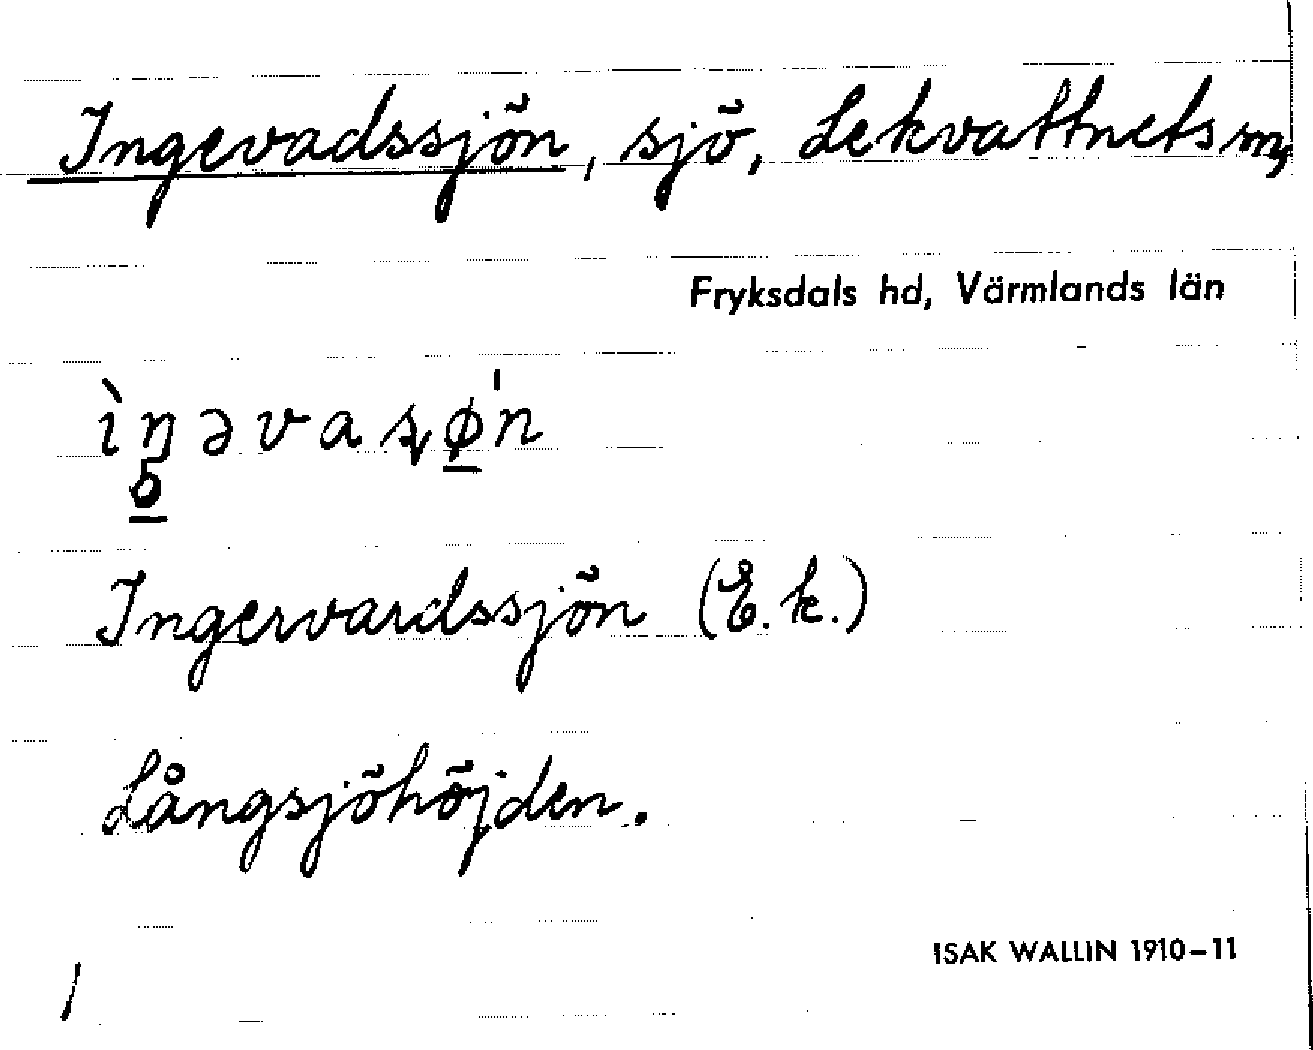 Ingevadssjön, sjö, Lekvattnets sn,
Fryksdals hd, Värmlands län
ìŋəvaʂø'n
Ingervardssjön (E.k.)
Långsjöhöjden.
ISAK WALLIN 1910-11